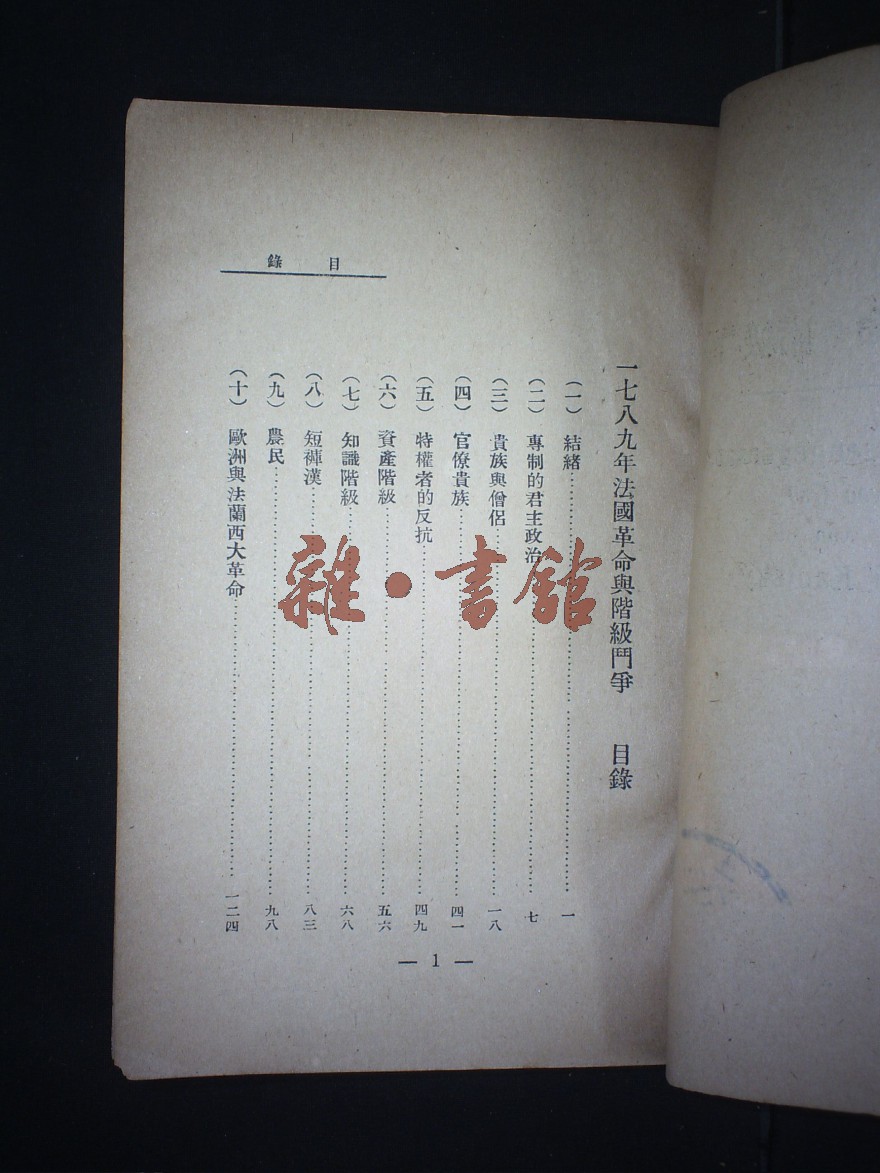 目錄
一七八九年法國革命與階級鬥爭 目錄
(一) 結緒……一
(二) 專制的君主政治……七
(三) 貴族與僧侶……一八
(四) 官僚貴族……四一
(五) 特權者的反抗……四九
(六) 資產階級……五六
(七) 知識階級……六八
(八) 短褲漢……八三
(九) 農民……九八
(十) 歐洲與法蘭西大革命……一二四
— 1 —
雜·書館